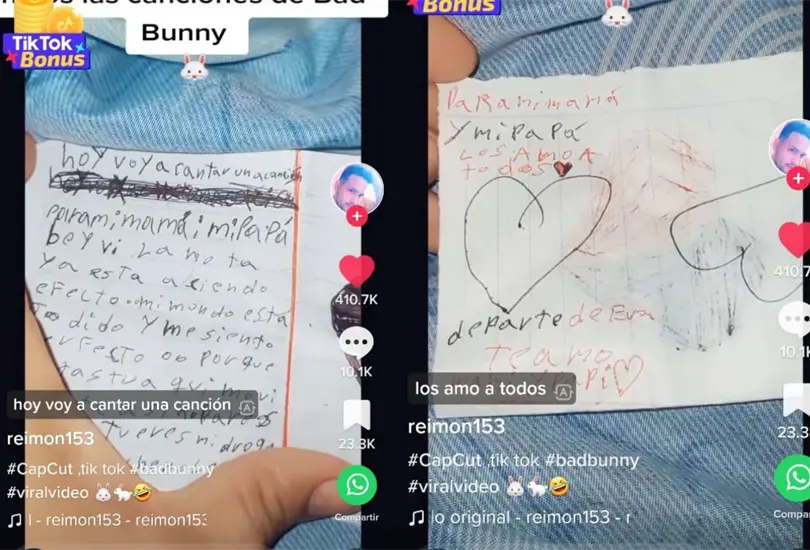 las canciones de Bad
Bunny
TikTok
Bonus
hoy voy a cantar una canción
para mi mamá i mi PaPá
beyvi. La no ta
ya esta a siendo
efecto. mi mundo está
dido y me siento
erfecto oo porque
tas tu a qui mavi
tu eres mi droga
410.7K
10.1K
23.3K
Compartir
hoy voy a cantar una canción
reimon153
#CapCut ,tik tok #badbunny
#viralvideo 🐰🐇🤣
l - reimon153 - reimon153
Bonus
PaRa mi mamá
y mi PaPá
Los AmO A
todos
departe de Eva
te amo
410.7
10.1K
23.3
Compar
los amo a todos
reimon153
#CapCut ,tik tok #badbunny
#viralvideo 🐰🐇🤣
io original - reimon153 - r